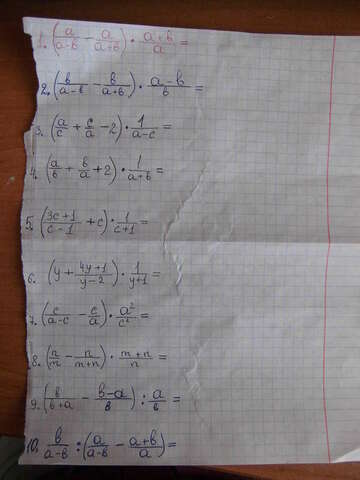 1. (a/(a-b) - a/(a+b)) · (a+b)/a =
2. (b/(a-b) - b/(a+b)) · (a-b)/b =
3. (a/c + c/a - 2) · 1/(a-c) =
4. (a/b + b/a + 2) · 1/(a+b) =
5. ((3c+1)/(c-1) + c) · 1/(c+1) =
6. (y + (4y+1)/(y-2)) · 1/(y+1) =
7. (c/(a-c) - c/a) · a²/c² =
8. (n/m - n/(m+n)) · (m+n)/n =
9. (b/(b+a) - (b-a)/b) : a/b =
10. b/(a-b) : (a/(a-b) - (a+b)/a) =